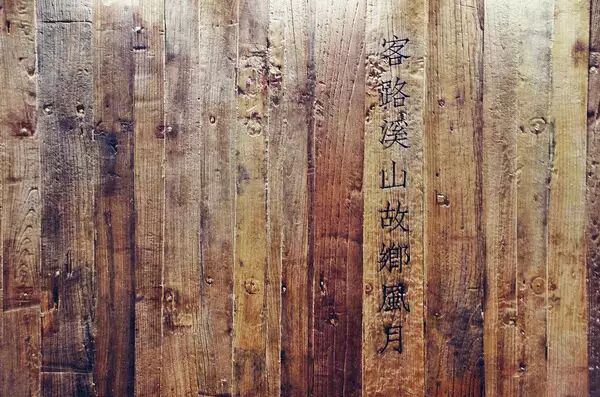 客路溪山故鄉風月